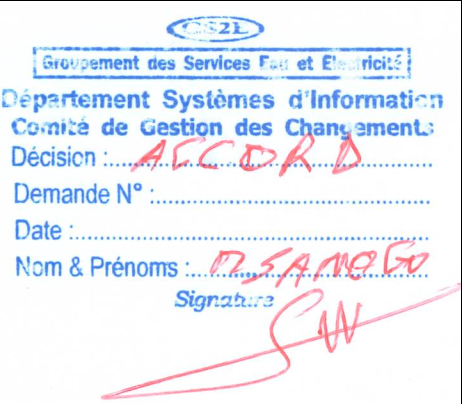 GS2E
Groupement des Services Eau et Electricité
Département Systèmes d'Information
Comité de Gestion des Changements
Décision : ACCORD
Demande N° :
Date :
Nom & Prénoms :
Signature